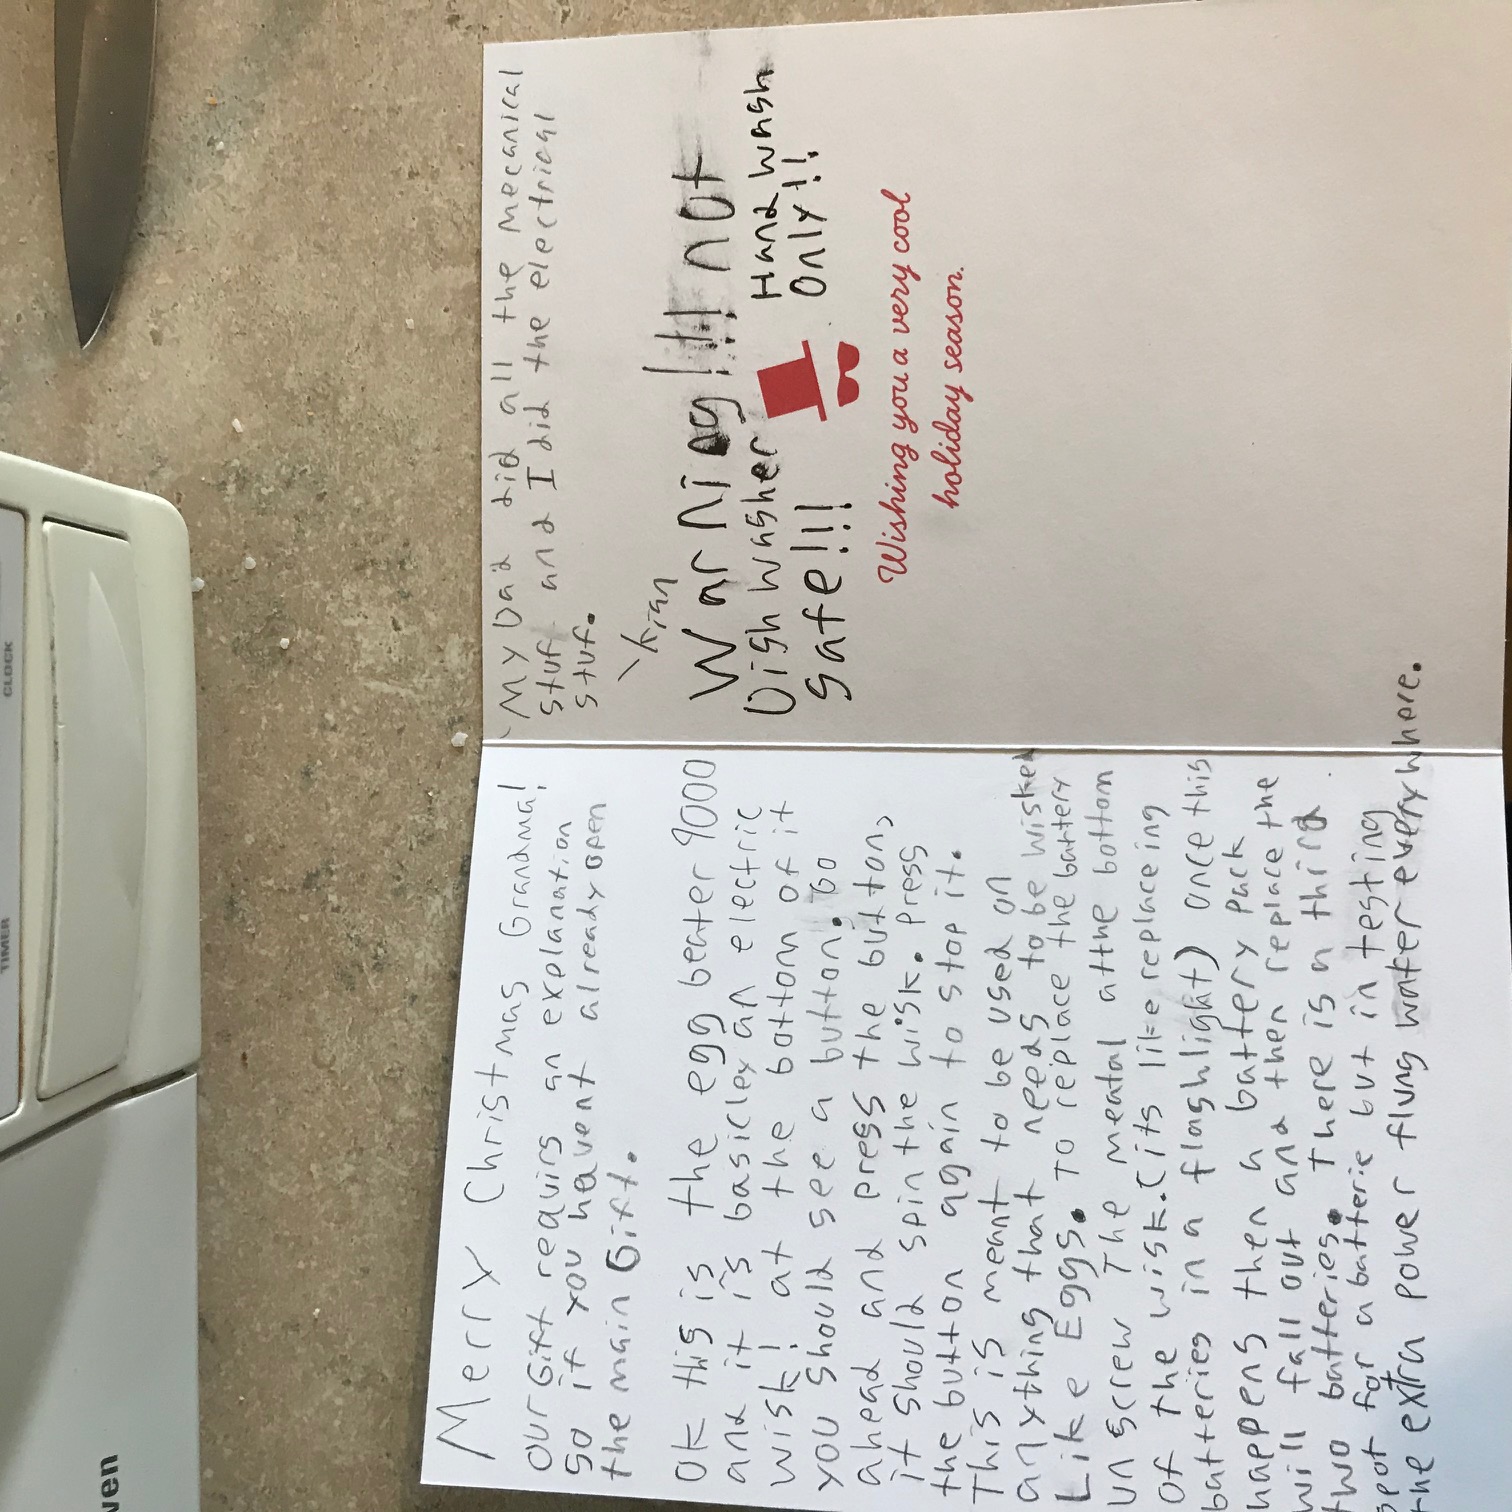 TIMER
CLOCK
ven
Merry Christmas Grandma!
Our Gift requirs an explanation
so if you havent already open
the main Gift.
Ok this is the egg beater 9000
and it is basicley an electric
wisk! at the bottom of it
you should see a button. Go
ahead and press the button,
it should spin the wisk. Press
the button again to stop it.
This is meant to be used on
anything that needs to be wisked
Like Eggs. To replace the battery
un screw The meatal at the bottom
of the wisk. (its like replaceing
batteries in a flashlight) once this
happens then a battery pack
will fall out and then replace the
two batteries. There is a third
spot for a batterie but in testing
the extra power flung water everywhere.
My Dad did all the mecanical
stuf and I did the electrical
stuf.
\Kian
Warning!!! not
Dish washer
Safe!!!
Hand wash
Only!!
Wishing you a very cool
holiday season.